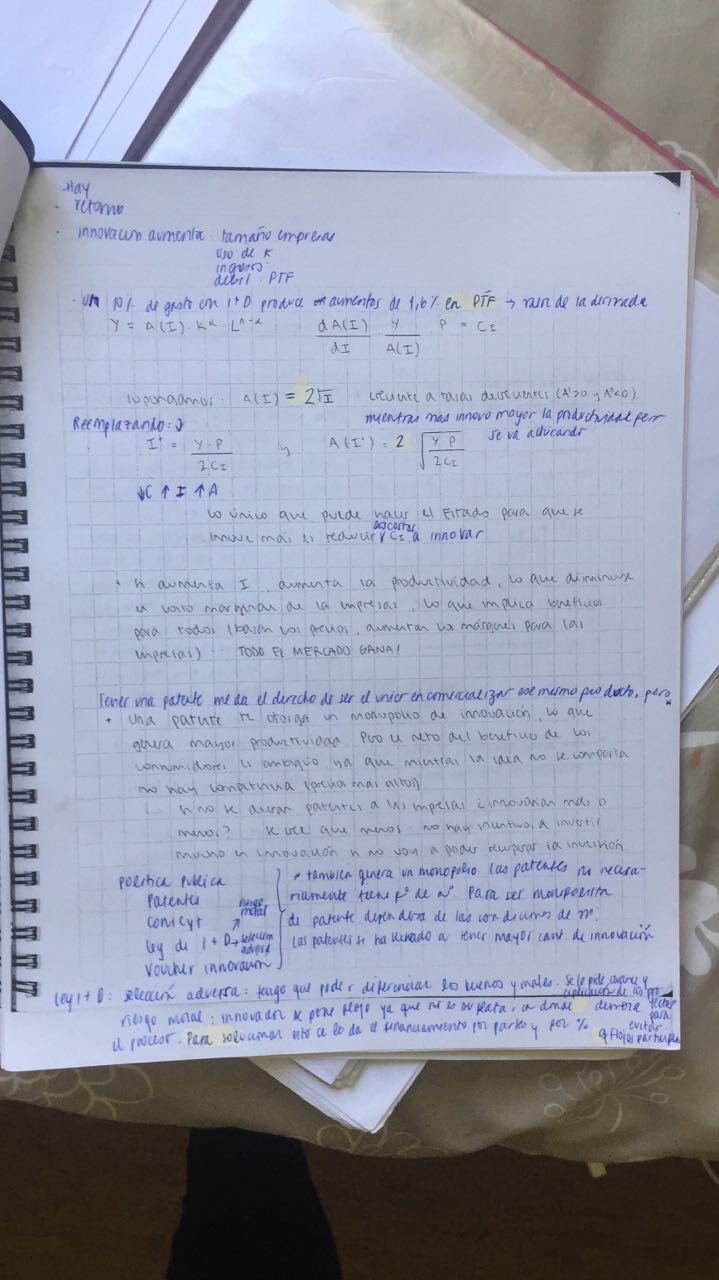 Hay
- retorno
- innovacion aumenta: tamaño empresas
uso de K
ingresos
PTF
10% de gasto en I+D produce aumentos de 1,6% en PTF → de la derivada
Y = A(I) · K^α · L^1-α    dA(I)/dI · Y/A(I) · P = C_I
supongamos: A(I) = 2√I creciente a tasas decrecientes (A'>0 y A''<0).
mientras mas innovo mayor la productividad pero
se va
Reemplazando:
I* = Y·P/2C_I y A(I*) = 2 √(Y P/2C_I)
↓C ↑I ↑A
Lo único que puede hacer el Estado para que se
innove más es reducir los costos C_I a innovar
+ si aumenta I, aumenta la productividad, lo que disminuye
el costo marginal de las empresas, lo que implica beneficios
para todos (bajan los precios, aumentan los márgenes para las
empresas) TODO EL MERCADO GANA!
Tener una patente me da el derecho de ser el unico en comercializar ese mismo producto, pero *
+ una patente te otorga un monopolio de innovación, lo que
genera mayor productividad. Pero el neto del beneficio de los
consumidores es ambiguo ya que mientras la idea no se comparta
no hay competencia (precios más altos)
si no se dieran patentes a las empresas ¿innovarían más o
menos? se cree que menos: no hay incentivo a invertir
mucho en innovación si no voy a poder recuperar la inversión
Política Pública
Patentes
Conicyt
riesgo moral
Ley de I+D → selección adversa
Voucher innovacion
* también genera un monopolio. Las patentes no necesa-
riamente tiene Para ser monopolista
de patente dependera de las condiciones de mº.
Las patentes se ha llevado a tener mayor cant. de innovación
Ley I+D: selección adversa: tengo que poder diferenciar los buenos y malos. Se le pide avance y
explicacion de los proyectos
riesgo moral: innovador se pone flojo ya que no es su plata, en donde demora
el proceso. Para solucionar esto se le da el financiamiento por partes y por % para evitar
q flojos participen